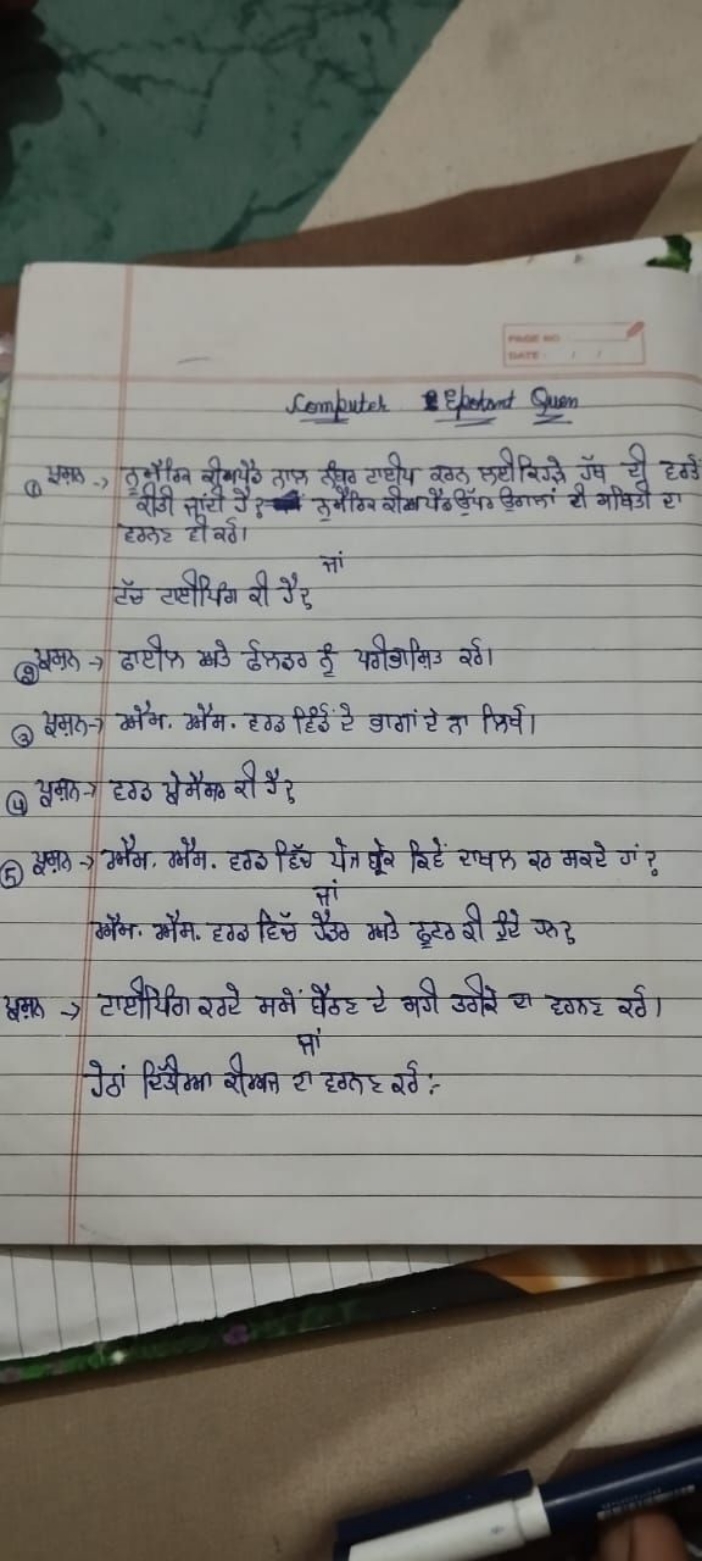 PAGE NO
DATE : / /
Computer Epotant Quen
① ਪ੍ਰਸ਼ਨ → ਨੂਮੈਰਿਕ ਕੀਅਪੈਡ ਨਾਲ ਨੰਬਰ ਟਾਈਪ ਕਰਨ ਲਈ ਕਿਹੜੇ ਹੱਥ ਦੀ ਵਰਤੋਂ
ਕੀਤੀ ਜਾਂਦੀ ਹੈ? ਨੂਮੈਰਿਕ ਕੀਅਪੈਡ ਉੱਪਰ ਉਂਗਲਾਂ ਦੀ ਸਥਿਤੀ ਦਾ
ਵਰਨਣ ਵੀ ਕਰੋ।
ਜਾਂ
ਟੱਚ ਟਾਈਪਿੰਗ ਕੀ ਹੈ?
② ਪ੍ਰਸ਼ਨ → ਫਾਈਲ ਅਤੇ ਫੋਲਡਰ ਨੂੰ ਪਰੀਭਾਸ਼ਿਤ ਕਰੋ।
③ ਪ੍ਰਸ਼ਨ → ਐਮ. ਐਸ. ਵਰਡ ਵਿੰਡੋ ਦੇ ਭਾਗਾਂ ਦੇ ਨਾਂ ਲਿਖੋ।
④ ਪ੍ਰਸ਼ਨ → ਵਰਡ ਪ੍ਰੋਸੈਸਰ ਕੀ ਹੈ?
⑤ ਪ੍ਰਸ਼ਨ → ਐਮ. ਐਸ. ਵਰਡ ਵਿੱਚ ਪੇਜ ਬ੍ਰੇਕ ਕਿਵੇਂ ਦਾਖਲ ਕਰ ਸਕਦੇ ਹਾਂ?
ਜਾਂ
ਐਮ. ਐਸ. ਵਰਡ ਵਿੱਚ ਹੈਡਰ ਅਤੇ ਫੂਟਰ ਕੀ ਹੁੰਦੇ ਹਨ?
ਪ੍ਰਸ਼ਨ → ਟਾਈਪਿੰਗ ਕਰਦੇ ਸਮੇਂ ਬੈਠਣ ਦੇ ਸਹੀ ਤਰੀਕੇ ਦਾ ਵਰਨਣ ਕਰੋ।
ਜਾਂ
ਹੇਠਾਂ ਦਿੱਤੀਆ ਕੀਅਜ਼ ਦਾ ਵਰਨਣ ਕਰੋ :-